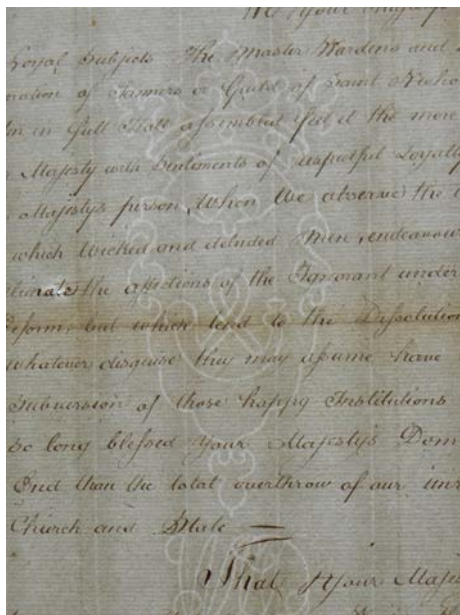 We Your Majesty's
Loyal Subjects The Master Wardens and
oration of Tanners or Guild of Saint Nicho
in in Full Hall assembled feel it the more
Majesty with Sentiments of respectful Loyalty
Majestys person, When We observe the
which Wicked and deluded Men, endeavour
alienate the affections of the Ignorant under
Reform, but which tend to the Dissolution
whatever disguise they may assume have
Subversion of those happy Institutions
so long blessed Your Majesty's Dom
End than the total overthrow of our
Church and State
That Your Majes